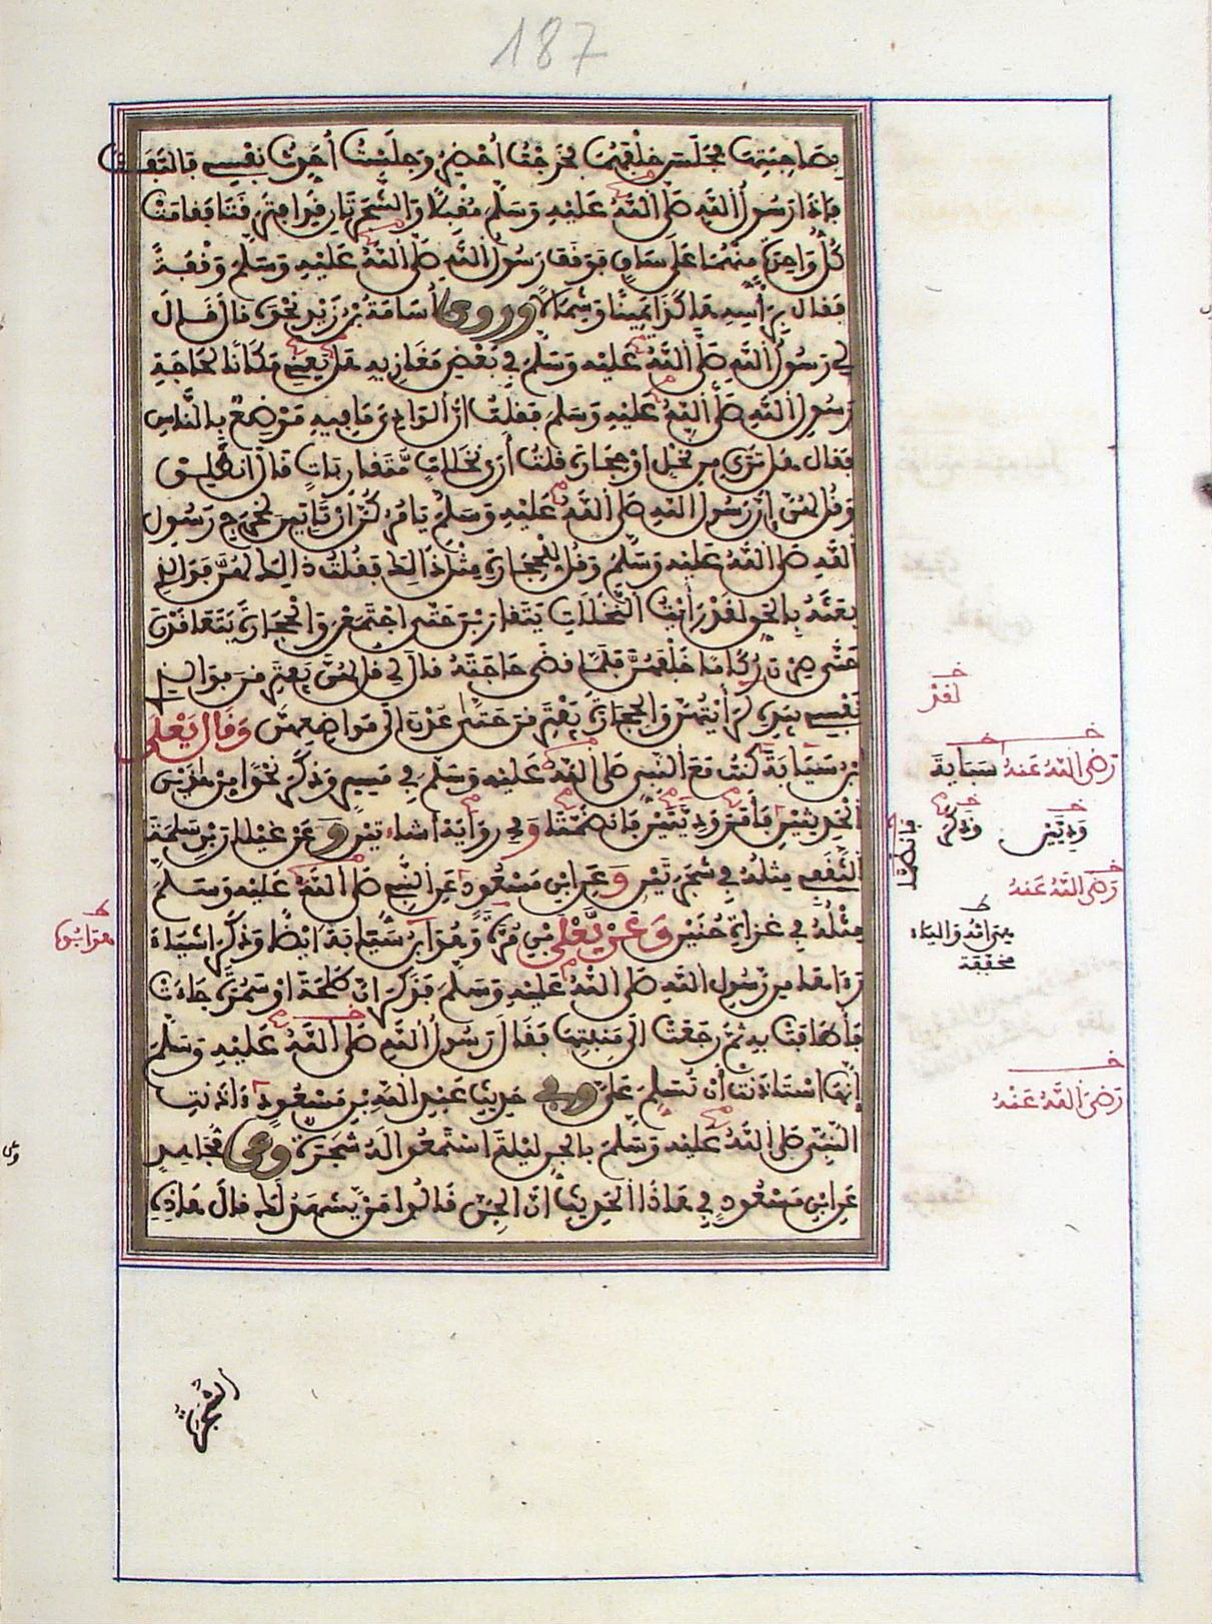 187
بصاحبتها فجلست خلفهما فخرجت أحضر وجلست أحدث نفسي فالتفت
فإذا رسول الله صلى الله عليه وسلم مقبلا والشجرتان قد افترقتا فقامت
كل واحدة منهما على ساق فوقف رسول الله صلى الله عليه وسلم وقفة
فقال برأسه هاكذا يمينا وشمالا وروى أسامة بن زيد نحوه قال قال
لي رسول الله صلى الله عليه وسلم في بعض مغازيه هل يعني مكانا لحاجة
رسول الله صلى الله عليه وسلم فقلت ان الوادي ما فيه موضع بالناس
فقال هل ترى من نخل او حجارة قلت أرى نخلات متقاربات قال انطلق
وقل لهن إن رسول الله صلى الله عليه وسلم يامركن ان تاتين لمخرج رسول
الله صلى الله عليه وسلم وقل للحجارة مثل ذالك فقلت ذالك لهن فوالذي
بعثه بالحق لقد رأيت النخلات يتقاربن حتى اجتمعن والحجارة يتعاقدن
حتى صرن ركاما خلفهن فلما قضى حاجته قال لي قل لهن يفترقن فوالذي
نفسي بيده لرأيتهن والحجارة يفترقن حتى عدن الى مواضعهن وقال يعلى
بن سيابة كنت مع النبي صلى الله عليه وسلم في مسير وذكر نحوا من هاذين
الحديثين فأمر وديتين فانضمتا وفي رواية أشاءتين وعن غيلان بن سلمة
الثقفي مثله في شجرتين وعن ابن مسعود عن النبي صلى الله عليه وسلم
مثله في غزاة حنين وعن يعلى بن مرة وهو ابن سيابة ايضا وذكر اشياء
رءاها من رسول الله صلى الله عليه وسلم فذكر ان طلحة او سمرة جاءت
فأطافت به ثم رجعت الى منبتها فقال رسول الله صلى الله عليه وسلم
إنها استاذنت أن تسلم علي وفي حديث عبد الله بن مسعود ءاذنت
النبي صلى الله عليه وسلم بالجن ليلة استمعوا له شجرة وعن مجاهد
عن ابن مسعود في هاذا الحديث ان الجن قالوا من يشهد لك قال هاذه
الشجرة
خ
لقد
خ
رضي الله عنه سيابة
خ
وديين
خ
وذكر
فانضما
خ
رضي الله عنه
ط
والياء
مخففة
ط
خ
رضي الله عنه